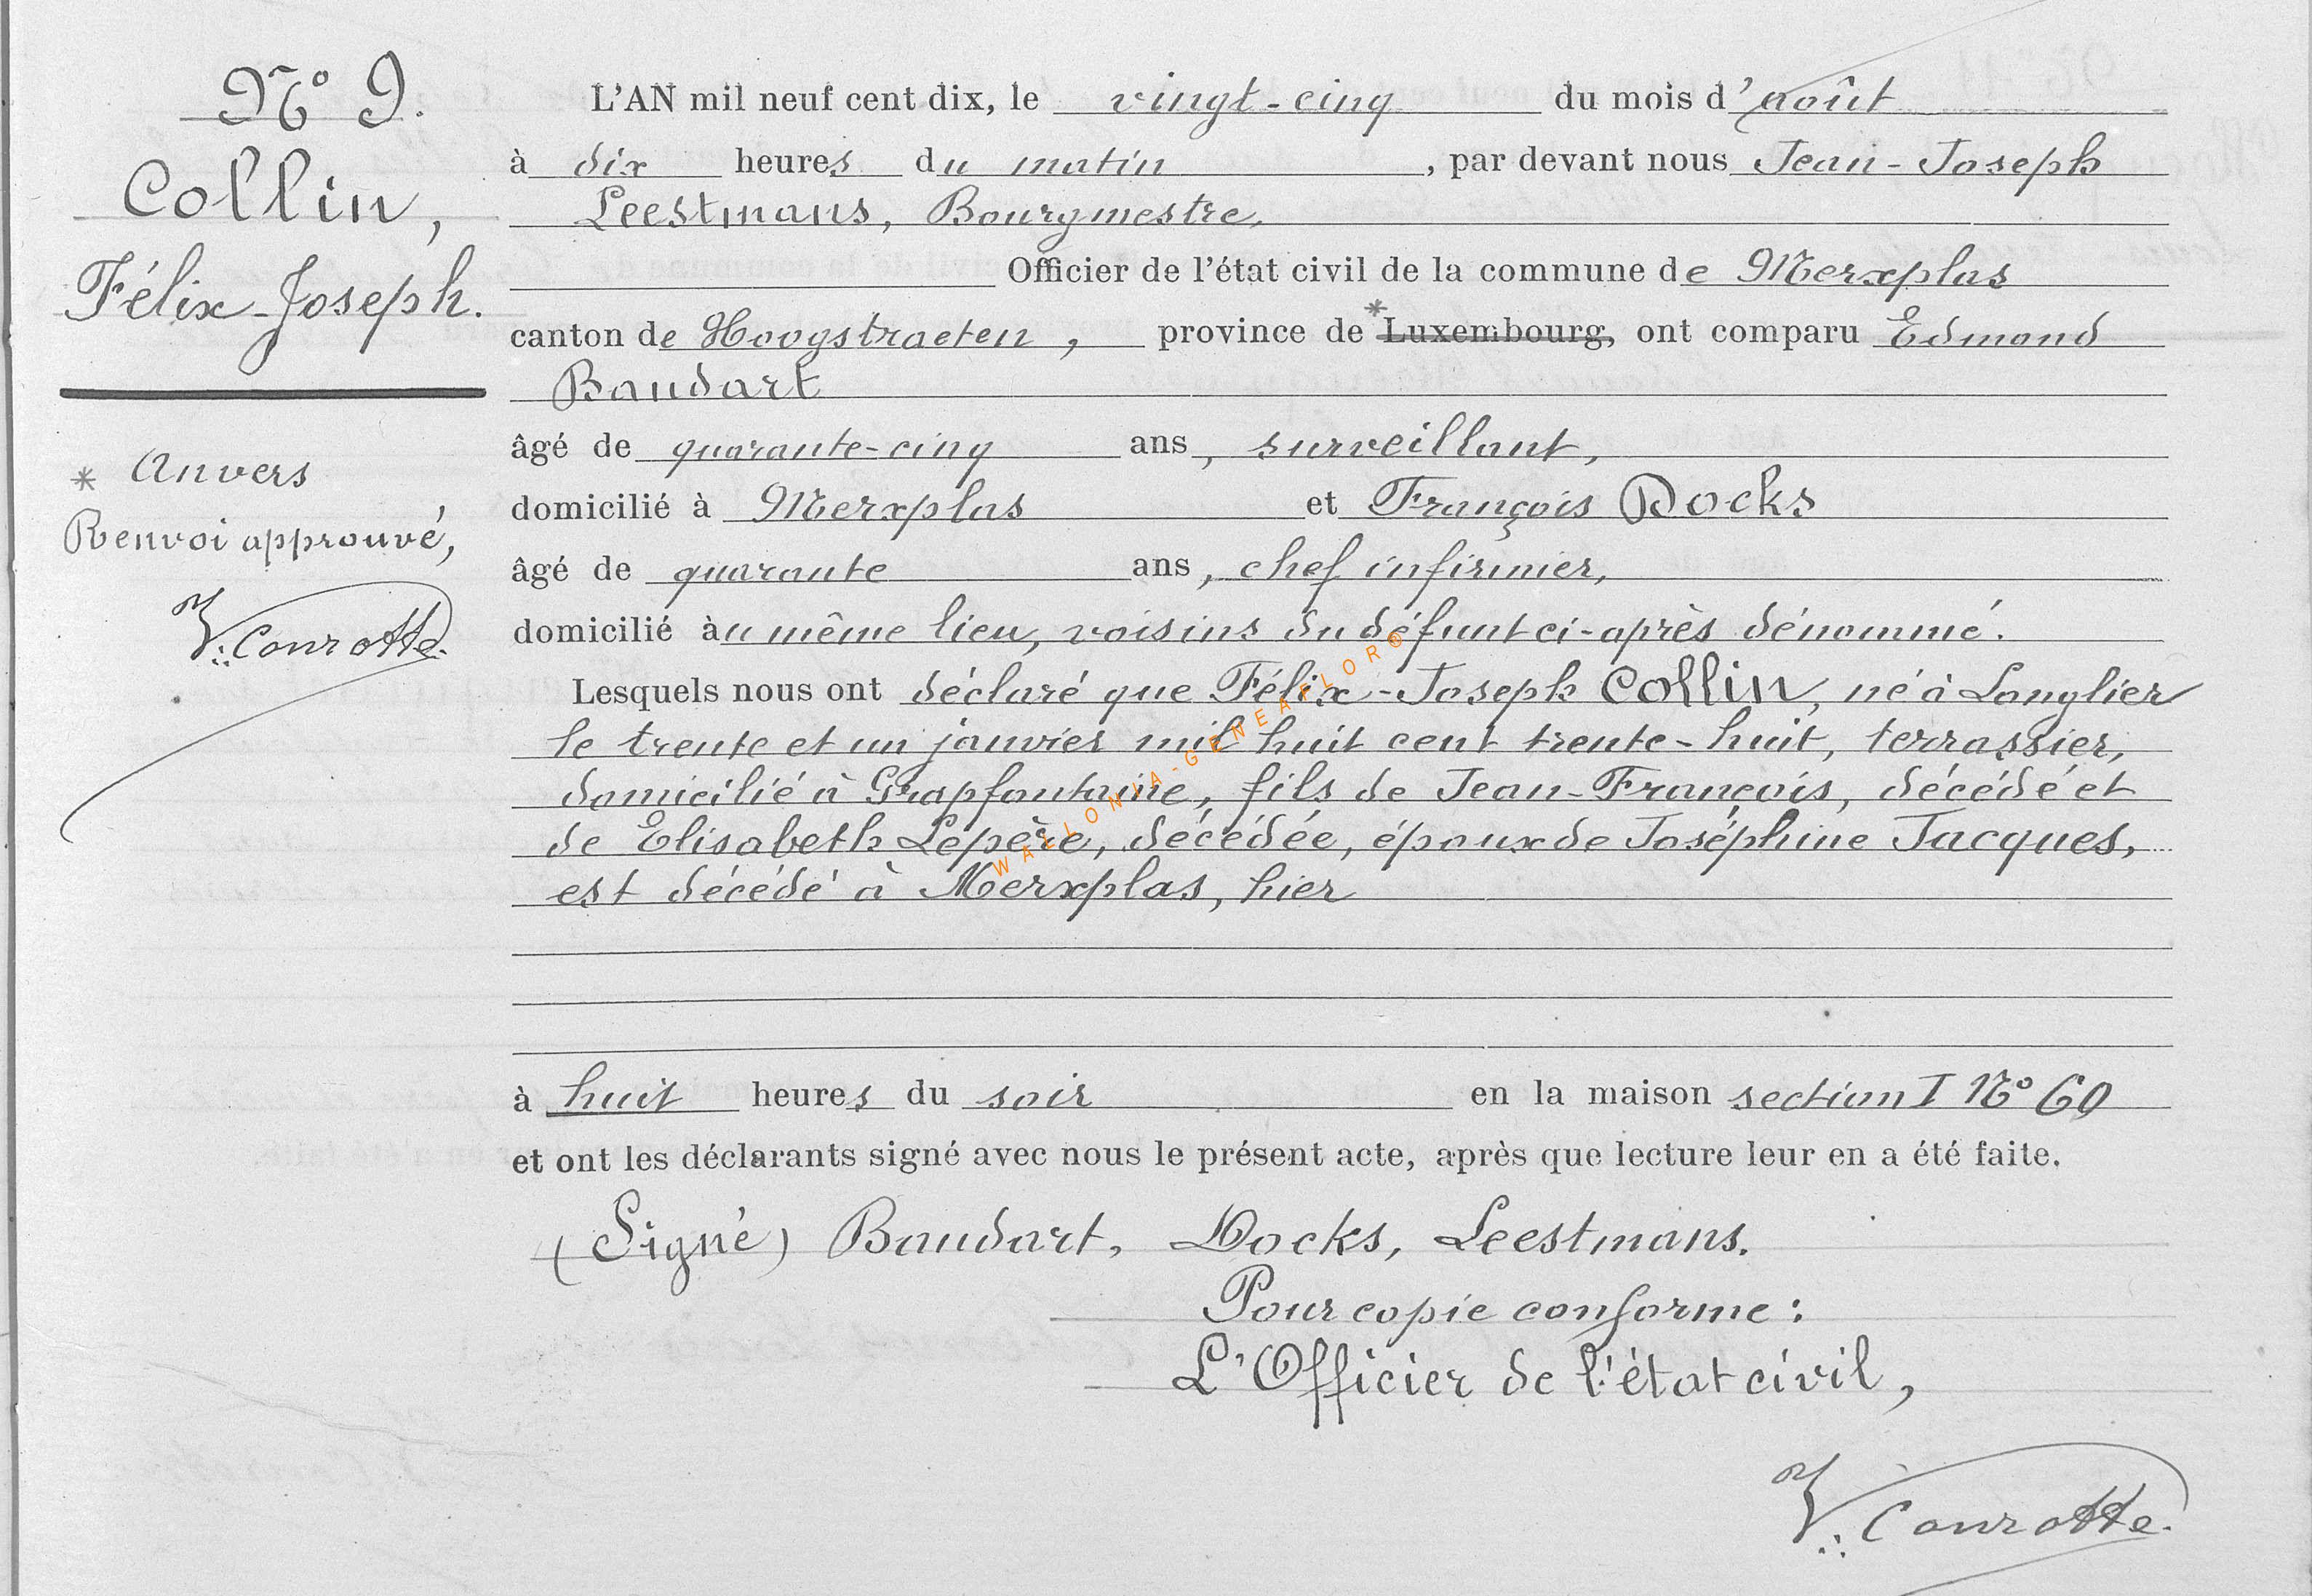 N° 9.
Collin,
Félix-Joseph.
* Anvers
Renvoi approuvé,
V. Conrotte.
L'AN mil neuf cent dix, le vingt-cinq du mois d'août
à dix heures du matin, par devant nous Jean-Joseph
Leestmans, Bourgmestre,
Officier de l'état civil de la commune de Merxplas
canton de Hoogstraeten, province de *Luxembourg, ont comparu Edmond
Baudart
âgé de quarante-cinq ans, surveillant,
domicilié à Merxplas et François Docks
âgé de quarante ans, chef infirmier,
domicilié au même lieu, voisins du défunt ci-après dénommé.
Lesquels nous ont déclaré que Félix-Joseph Collin, né à Longlier
le trente et un janvier mil huit cent trente-huit, terrassier,
domicilié à Grapfontaine, fils de Jean-François, décédé et
de Elisabeth Lepère, décédée, époux de Joséphine Jacques,
est décédé à Merxplas, hier
à huit heures du soir en la maison section I N° 60
et ont les déclarants signé avec nous le présent acte, après que lecture leur en a été faite.
(Signé) Baudart, Docks, Leestmans.
Pour copie conforme :
L'Officier de l'état civil,
V. Conrotte.
WALLONIA-GENEAFLOR®